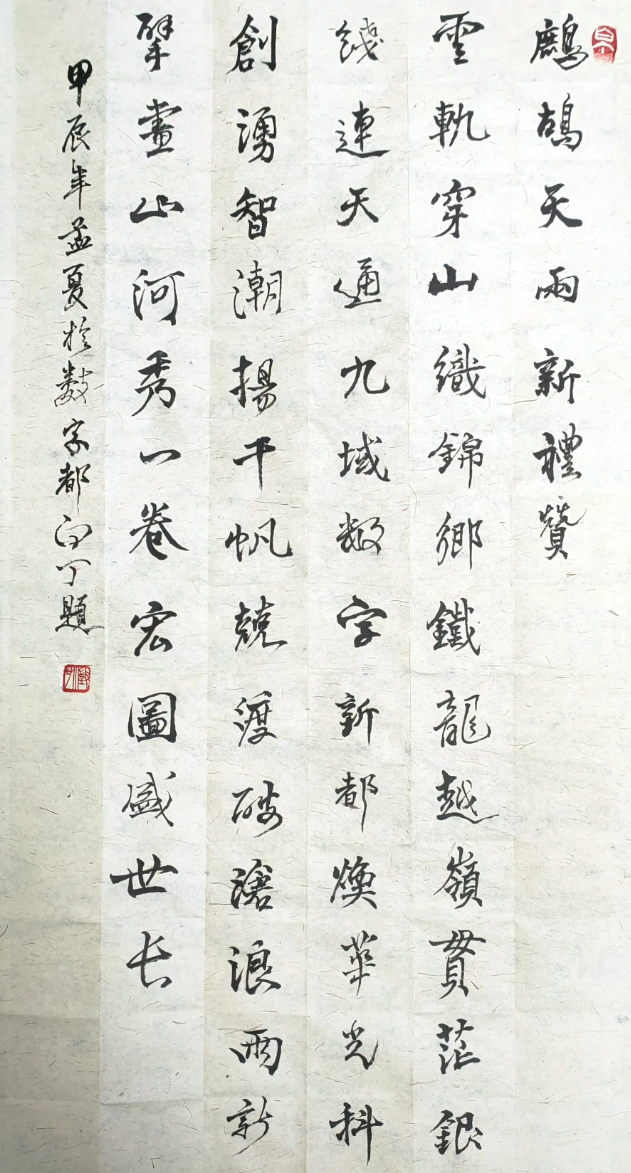 鷓鴣天兩新禮贊
雲軌穿山織錦鄉鐵龍越嶺貫茫銀
綫連天通九域数字新都煥華光科
創湧智潮揚千帆競渡破滄浪兩新
擘畫山河秀一卷宏圖盛世长
甲辰年孟夏於数字都白丁題